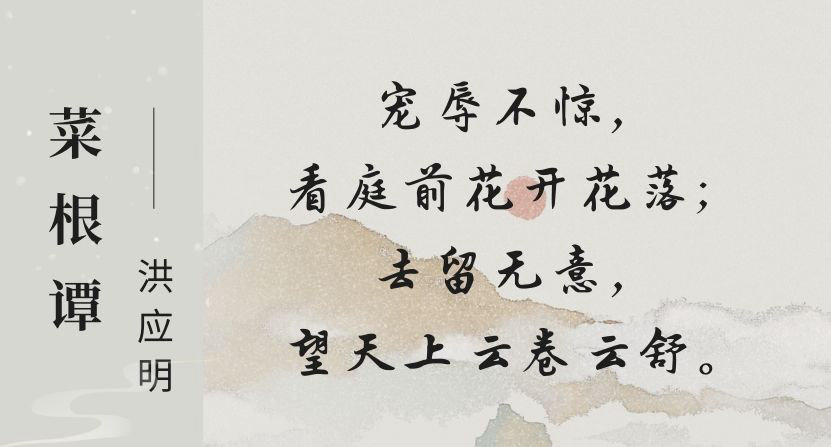 菜根谭
——洪应明
宠辱不惊，
看庭前花开花落；
去留无意，
望天上云卷云舒。